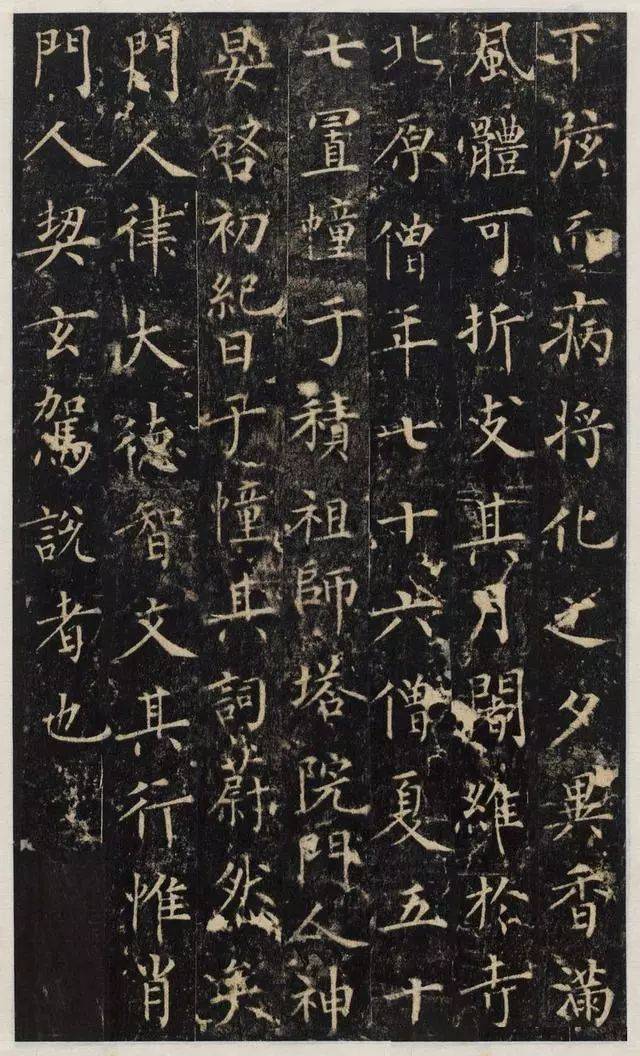 下弦而病将化之夕異香滿
風體可折支其月闍維於寺
北原僧年七十六僧夏五十
七置幢于積祖師塔院門人神
晏啓初紀日子幢其詞蔚然矣
門人律大德智文其行惟肖
門人契玄駕說者也